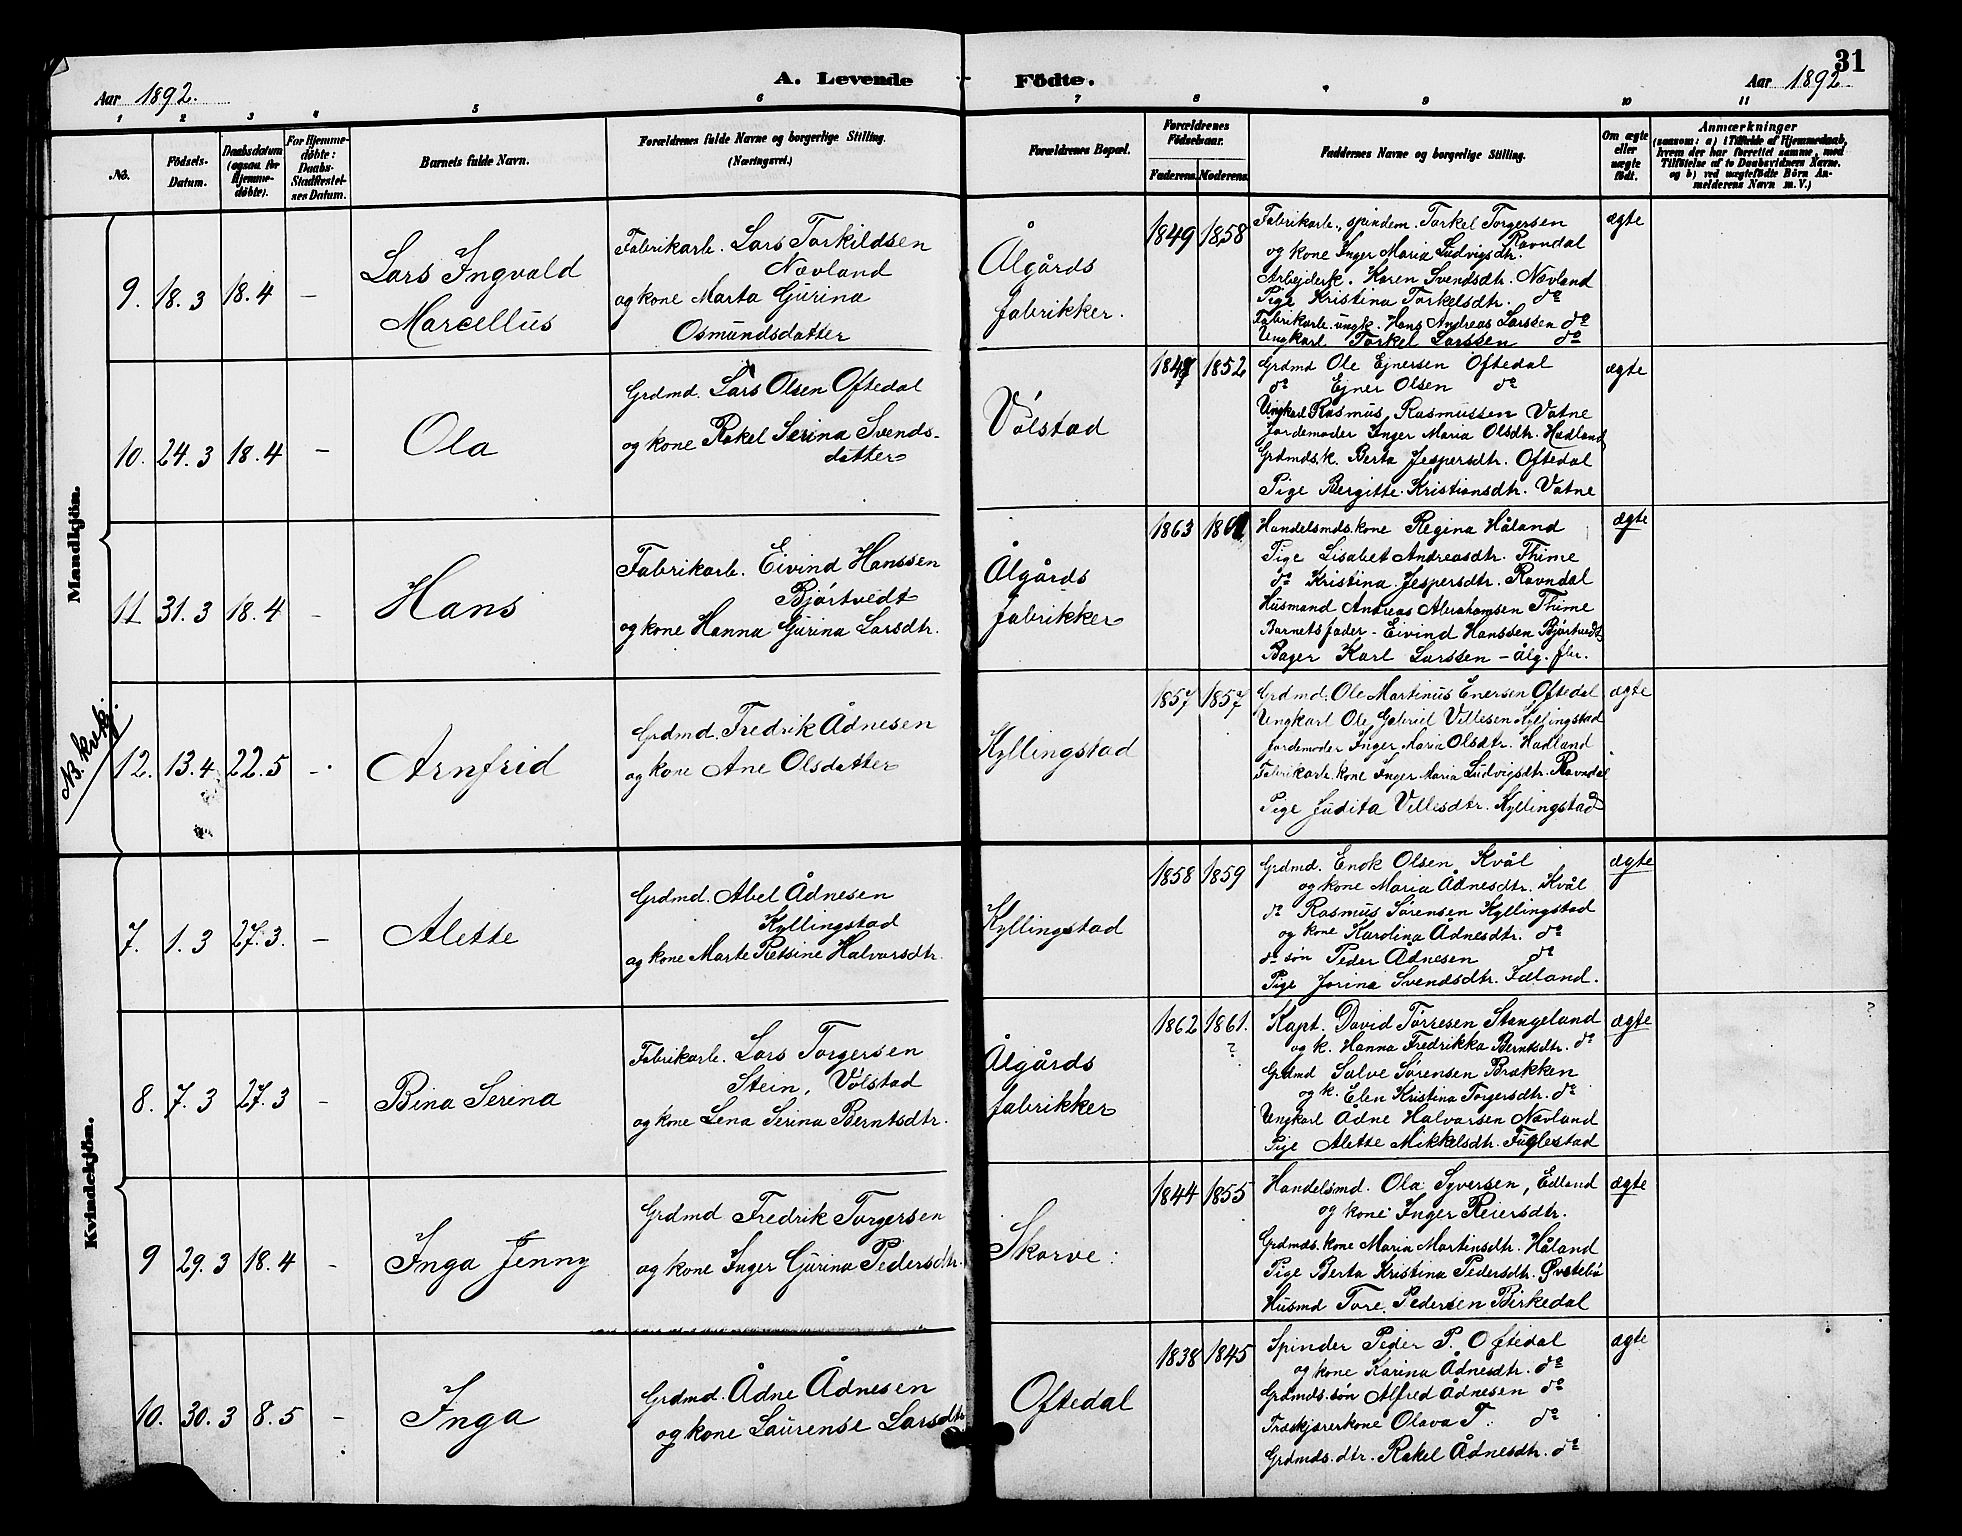 31
A. Levende Födte.
Aar 1892.
Aar 1892.
1 2 3 4 5 6 7 8 9 10 11
No.
Födsels-Datum.
Daabsdatum (ogsaa for Hjemmedöbte).
For Hjemmedöbte: Daabs-Stadfæstelses Datum.
Barnets fulde Navn.
Forældrenes fulde Navne og borgerlige Stilling. (Næringsvei.)
Forældrenes Bopæl.
Forældrenes Födselsaar.
Faderens. Moderens.
Faddernes Navne og borgerlige Stilling.
Om ægte eller uægte födt.
Anmærkninger
(saasom: a) i Tilfælde af Hjemmedaab, hvem der har forrettet samme, med Tilföielse af to Daabsvidners Navne. og b) ved uægtefödte Börn Anmelderens Navn m. V.)
Mandkjön.
9. 18.3 18.4 –
Lars Ingvald
Marcellus
Fabrikarb. Lars Torkildsen
Nævland
og kone Marta Gurina
Osmundsdatter
Ålgårds
fabrikker.
1849 1858
Fabrikarb., spindem. Torkel Torgersen
Ravndal
og kone Inger Maria Ludvigsdtr.
Arbejderk. Karen Svendsdtr. Nævland
Pige Kristina Torkelsdtr. do
Fabrikarb. ungk. Hans Andreas Larssen do
Ungkarl Torkel Larssen do
ægte
10. 24.3 18.4 –
Ola
Grdmd. Lars Olsen Oftedal
og kone Rakel Serina Svends-
datter
Vølstad
1849 1852
Grdmd Ole Ejnersen Oftedal
do Ejner Olsen do
Ungkarl Rasmus Rasmussen Vatne
Jordemoder Inger Maria Olsdtr. Hadland
Grdmds.k. Berta Jespersdtr. Oftedal
Pige Bergitte Kristiansdtr. Vatne
ægte
11 31.3 18.4 –
Hans
Fabrikarb. Eivind Hanssen
Bjørtvedt
og kone Hanna Gurina Larsdtr.
Ålgårds
fabrikker
1863
Handelsmds. kone Regina Håland
Pige Lisabet Andreasdtr. Thime
do Kristina Jespersdtr. Ravndal
Husmand Andreas Abrahamsen Thime
Barnets fader – Eivind Hanssen Bjørtvedt
Bager Karl Larssen – Ålg. fbr.
ægte
12. 13.4 22.5 –
Arnfrid
Grdmd. Fredrik Ådnesen
og kone Ane Olsdatter
Kyllingstad
1857 1857
Grdmd. Ole Martinus Enersen Oftedal
Ungkarl Ole Gabriel Villesen Kyllingstad
Jordemoder Inger Maria Olsdtr. Hadland
Fabrikarb. kone Inger Maria Ludvigsdtr. Ravndal
Pige Judita Villesdtr. Kyllingstad
ægte
NB. kvkj.
Kvindekjön.
7. 1.3 27.3. –
Alette
Grdmd. Abel Ådnesen
Kyllingstad
og kone Marte Retsine Halvorsdtr.
Kyllingstad
1858 1859
Grdmd. Enok Olsen Kvål
og kone Maria Ådnesdtr. Kvål
do Rasmus Sørensen Kyllingstad
og kone Karolina Ådnesdtr. do
do søn Peder Ådnesen do
Pige Jorina Svendsdtr. Edland.
ægte
8. 7.3 27.3 –
Bina Serina
Fabrikarb. Lars Torgersen
Stein, Vølstad
og kone Lena Serina Berntsdtr.
Ålgårds
fabrikker
1862 1861.
?
Kapt. David Tørresen Stangeland
og k. Hanna Fredrikka Berntsdtr. do
Grdmd Salve Sørensen Brækken
og k. Elen Kristina Torgersdtr. do
Ungkarl Ådne Halvorsen Nævland
Pige Alette Mikkelsdtr. Fuglestad
ægte
?
9 29.3 18.4 –
Inga Jenny
Grdmd Fredrik Torgersen
og kone Inger Gurina Pedersdtr.
Skarve
1844 1855
Handelsmd. Ola Syversen, Edland
og kone Inger Reiersdtr.
Grdmds. kone Maria Martinsdtr. Håland
Pige Berta Kristina Pedersdtr. Øvstebø
Husmd Tore Pedersen Birkedal
ægte
10. 30.3 8.5 –
Inga
Grdmd. Ådne Ådnesen
og kone Laurense Larsdtr
Oftedal
1838 1845
Spinder Peder P. Oftedal
og kone Karina Ådnesdtr. do
Grdmds. søn Alfred Ådnesen do
Træskjærerkone Olava T. do
Grdmds. dtr. Rakel Ådnesdtr. do
ægte